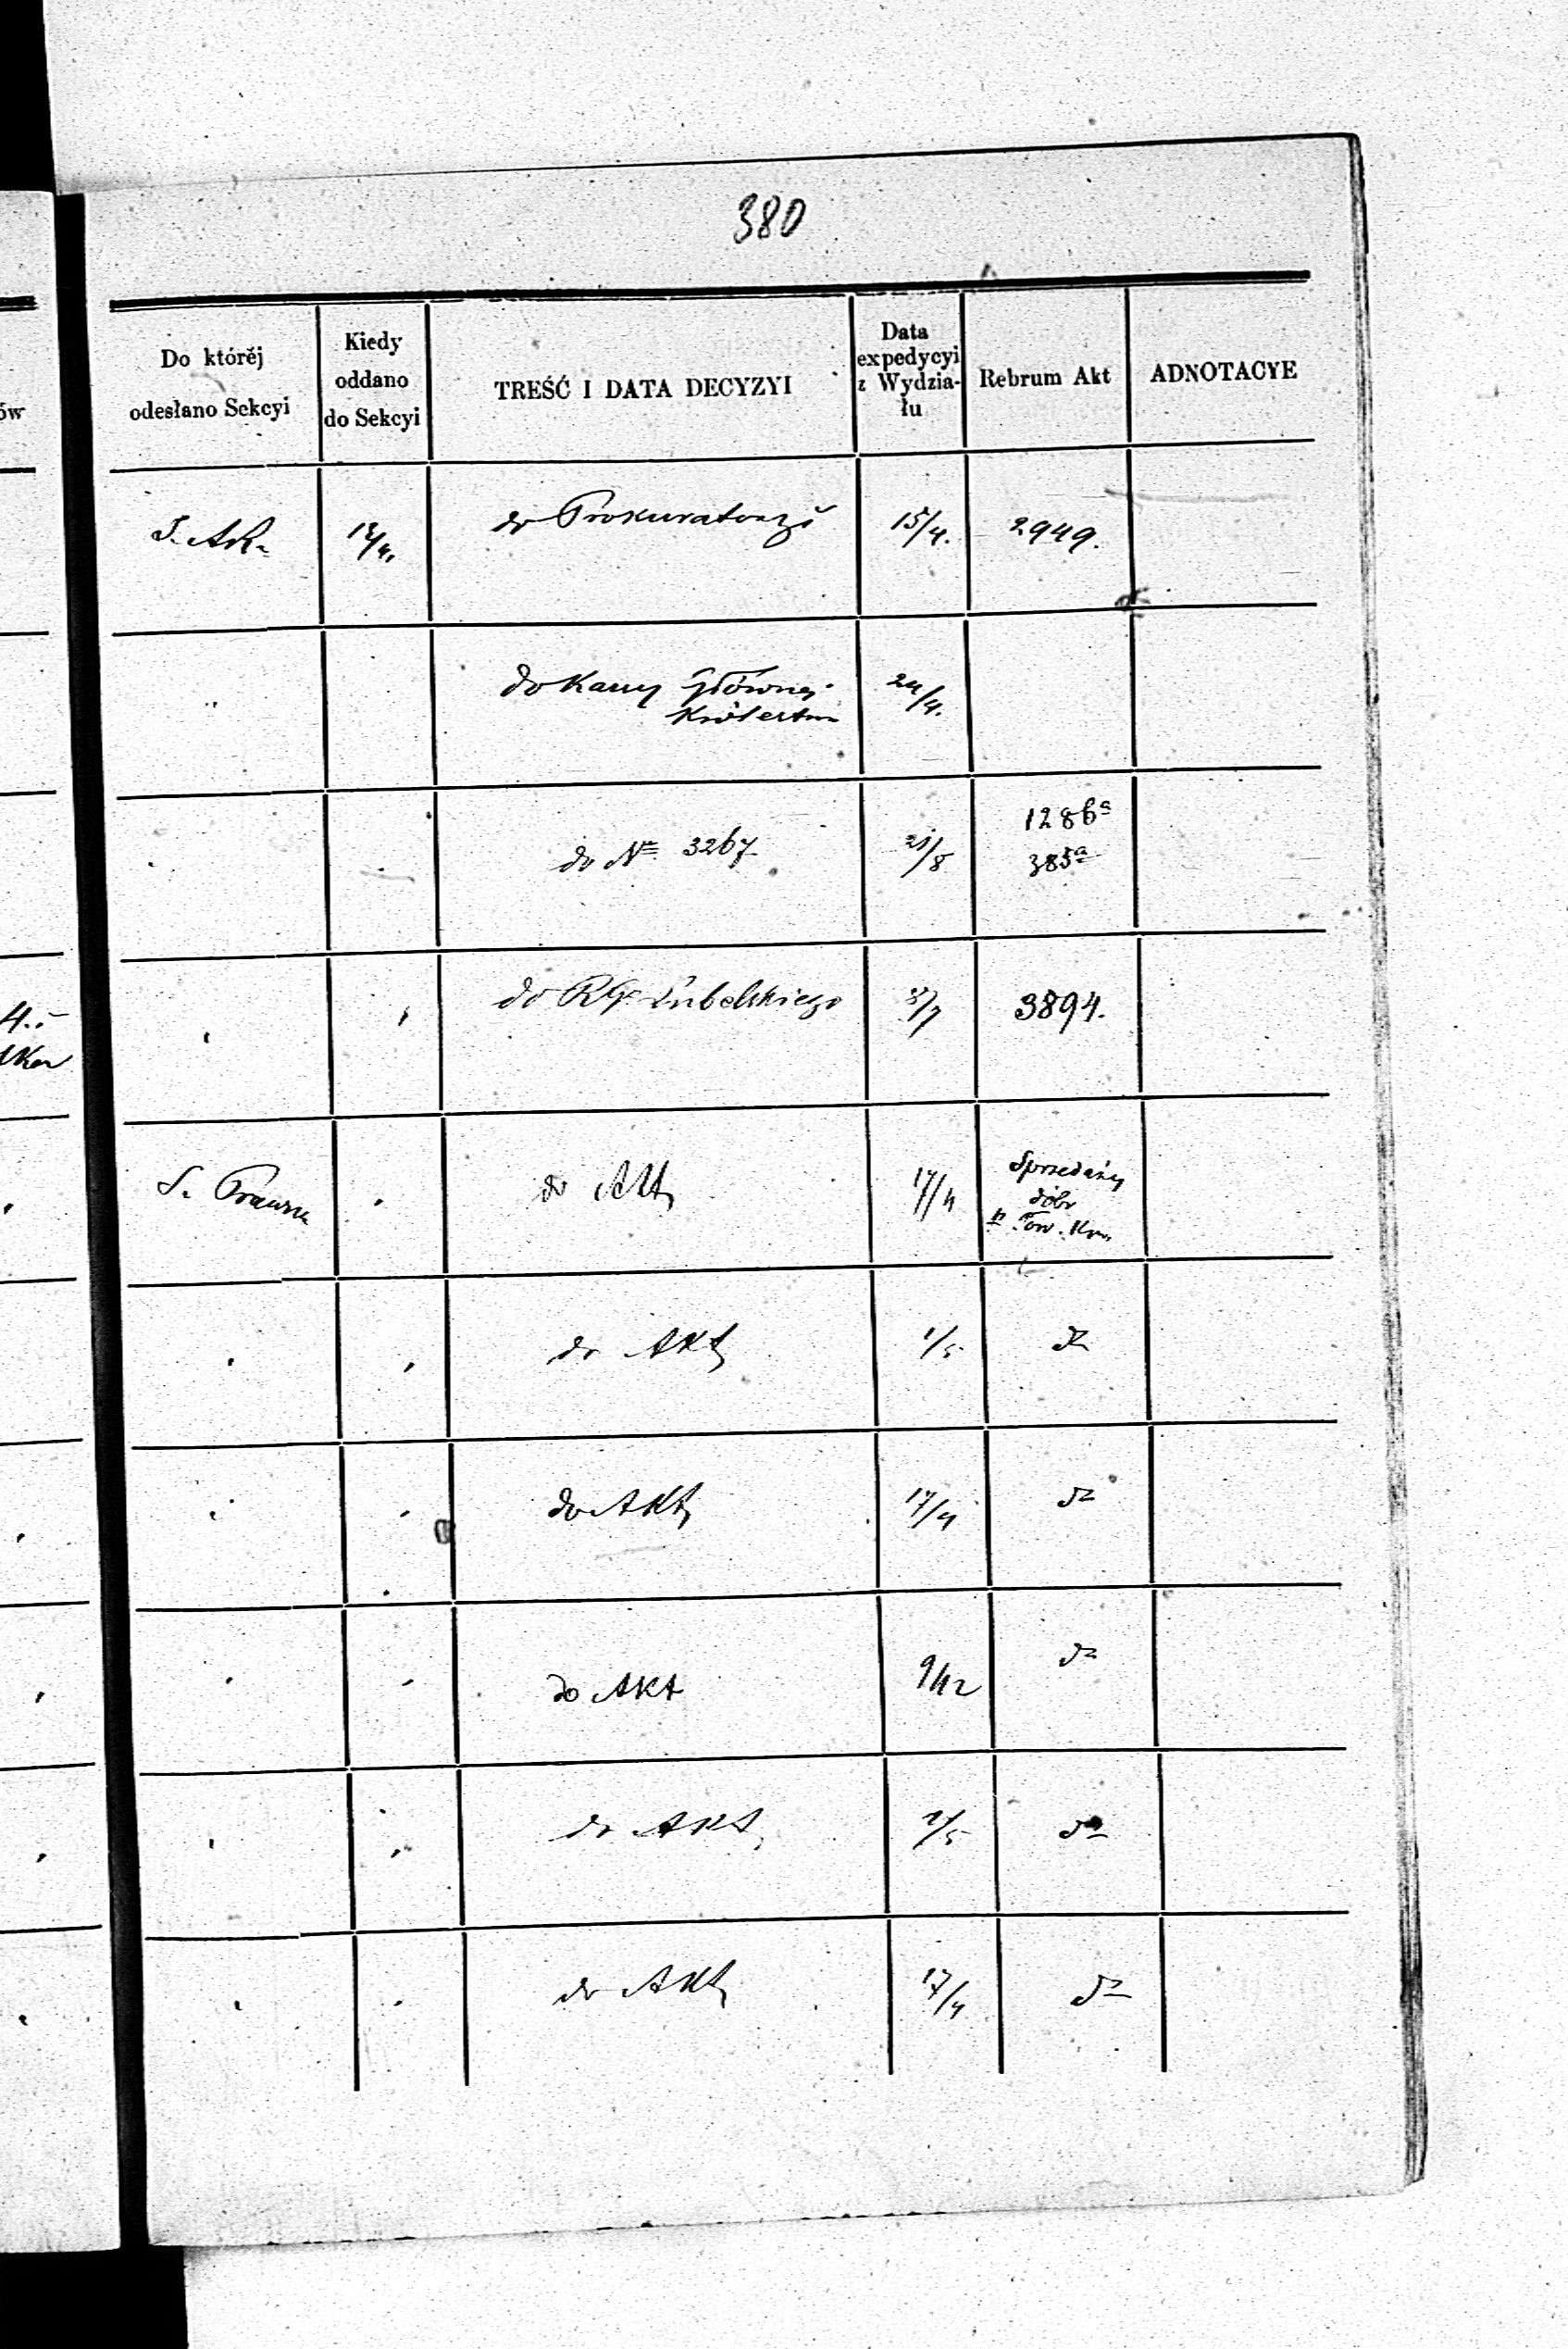 380
Do której odesłano Sekcyi
Kiedy oddano do Sekcyi
TREŚĆ I DATA DECYZYI
Data expedycyi z Wydzia-łu
Rebrum Akt
ADNOTACYE
do Prokuratoryi 15/4. 2949.
do Kassy Głównej 24/4.
Królestwa
1286a
do No 3267 21/8 385a
do RG. Lubelskiego 3894.
S. Prawna do Akt 17/4 Sprzedaży
dóbr
Tow. Kr.
do Akt 1/5 do
do Akt 17/4 do
do Akt 9/12 do
do Akt 2/5 do
do Akt 17/4 do